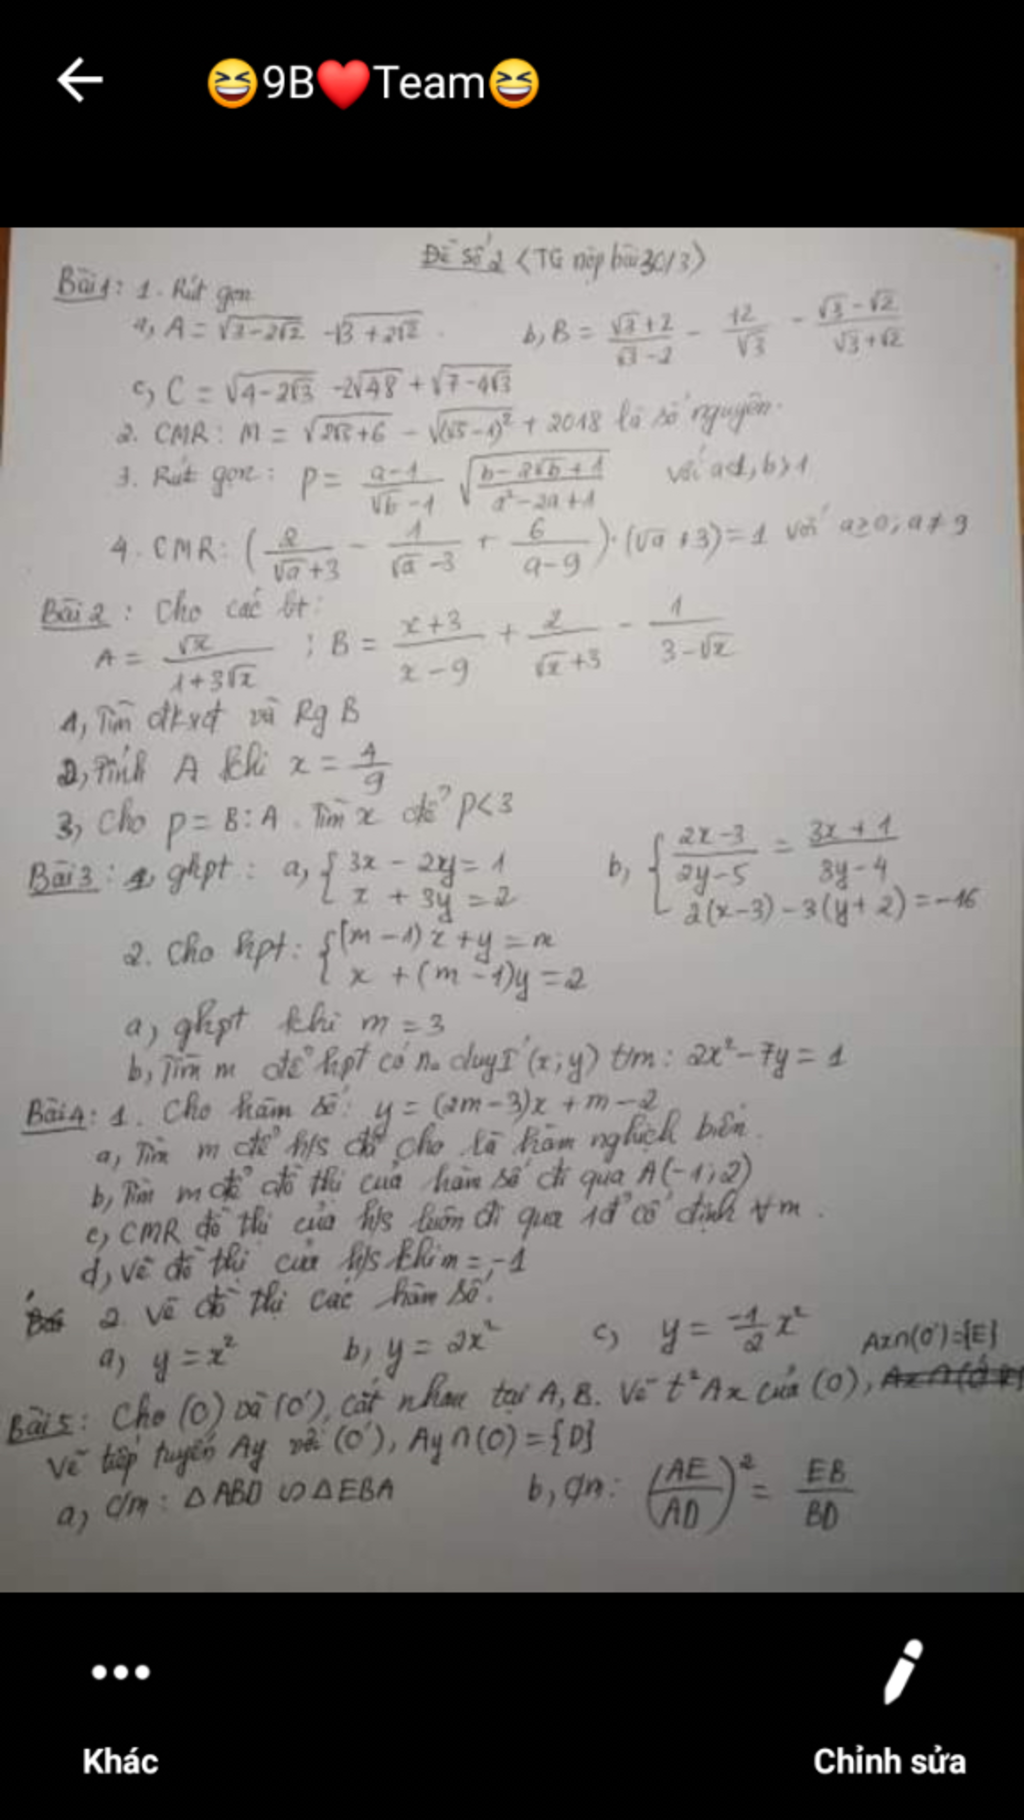 😆9B❤️Team😆
Đề số 2 (TG nộp bài 30/3)
Bài 1: 1. Rút gọn
a, A = √(3-2√2) - √(3+2√2)
b, B = (√3+2)/(√3-2) - 12/√3 - (√3-√2)/(√3+√2)
c, C = √(4-2√3) - 2√48 + √(7-4√3)
2. CMR: M = √(2√5+6) - √((√5-1)²) + 2018 là số nguyên.
3. Rút gọn: P = (a-1)/(√b-1) √((b-2√b+1)/(a²-2a+1)) với a<1, b>1
4. CMR: (2/(√a+3) - 1/(√a-3) + 6/(a-9)).(√a+3) = 1 với a≥0; a≠9
Bài 2: Cho các bt:
A = √x/(1+3√x) ; B = (x+3)/(x-9) + 2/(√x+3) - 1/(3-√x)
1, Tìm đkxđ và Rg B
2, Tính A khi x = 4/9
3, Cho P = B:A. Tìm x để P<3
Bài 3: 1, ghpt: a, { 3x - 2y = 1
x + 3y = 2
b, { (2x-3)/(2y-5) = (3x+1)/(3y-4)
2(x-3) - 3(y+2) = -16
2. Cho hpt: { (m-1)x + y = m
x + (m-1)y = 2
a, ghpt khi m = 3
b, Tìm m để hpt có no duy I (x;y) t/m: 2x² - 7y = 1
Bài 4: 1. Cho hàm số: y = (2m-3)x + m - 2
a, Tìm m để h/s đã cho là hàm nghịch biến.
b, Tìm m để đồ thị của hàm số đi qua A(-1;2)
c, CMR đồ thị của h/s luôn đi qua 1đ cố định ∀m.
d, Vẽ đồ thị của h/s khi m = -1
2. Vẽ đồ thị các hàm số:
a, y = x²
b, y = 2x²
c, y = -1/2 x²
Bài 5: Cho (O) và (O'), cắt nhau tại A, B. Vẽ t² Ax của (O), Ax∩(O')={E}
Vẽ tiếp tuyến Ay với (O'), Ay∩(O)={D}
a, c/m: ΔABD ∽ ΔEBA
b, c/m: (AE/AD)² = EB/BD
Khác
Chỉnh sửa